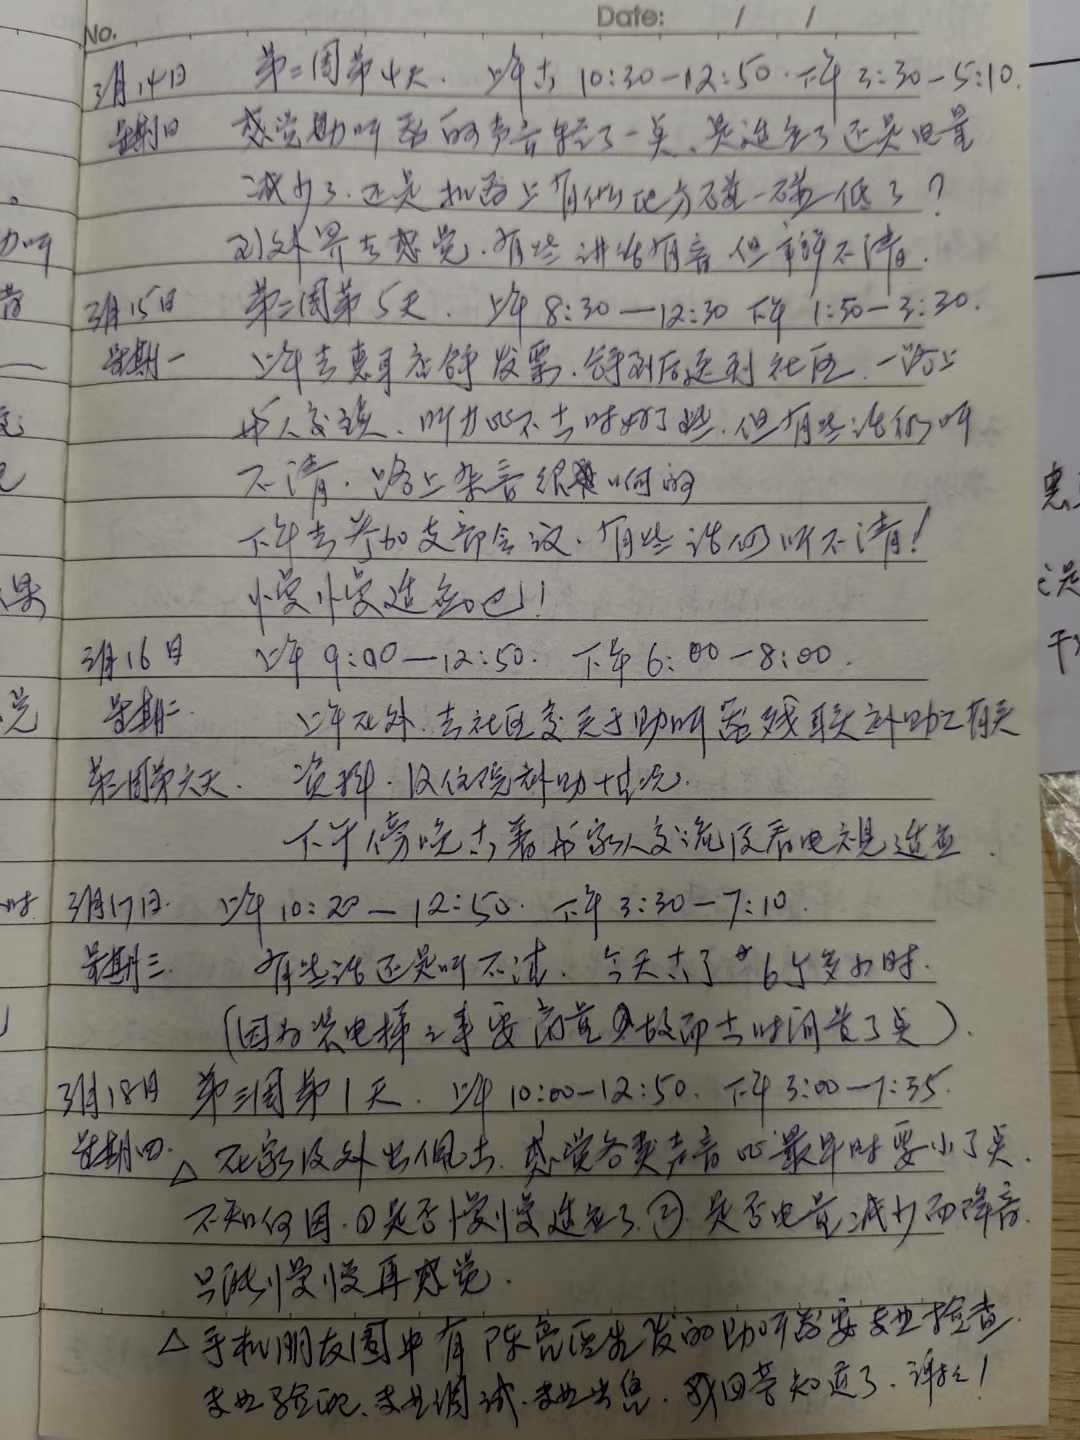 No. Date: / /
3月14日 第二周第4天. 上午去 10:30—12:50. 下午 3:30—5:10.
星期日 感觉助听器的声音轻了一点、是适应了还是电量
减少了. 还是机器上有什么地方碰一碰低了?
到外界去感觉. 有些讲话有音但辩不清.
3月15日 第二周第5天. 上午 8:30—12:30 下午 1:50—3:30.
星期一 上午去惠耳店拿发票. 拿到后送到社区. 一路上
与人交谈、听力比不去时好了些. 但有些话仍听
不清. 路上杂音很响的
下午去参加支部会议. 有些话仍听不清!
慢慢适应吧!
3月16日 上午 9:00—12:50. 下午 6:00—8:00.
星期二. 上午在外. 去社区交关于助听器残联补助之有关
第二周第六天. 资料. 及住院补助情况.
下午傍晚去着与家人交流及看电视适应.
时 3月17日. 上午 10:20—12:50. 下午 3:30—7:10.
星期三. 有些话还是听不清. 今天去了6个多小时.
(因为装电梯之事要商量故而去时间长了点).
3月18日 第三周第1天. 上午 10:00—12:50. 下午 3:00—7:35.
星期四. △ 在家及外出佩去. 感觉各类声音比最早时要小了点.
不知何因. ①是否慢慢适应了. ②. 是否电量减少而降音.
只能慢慢再感觉.
△ 手机朋友圈中有陈亮医生发的助听器要专业检查.
专业验配、专业调试. 专业出售. 我回答知道了. 谢谢!